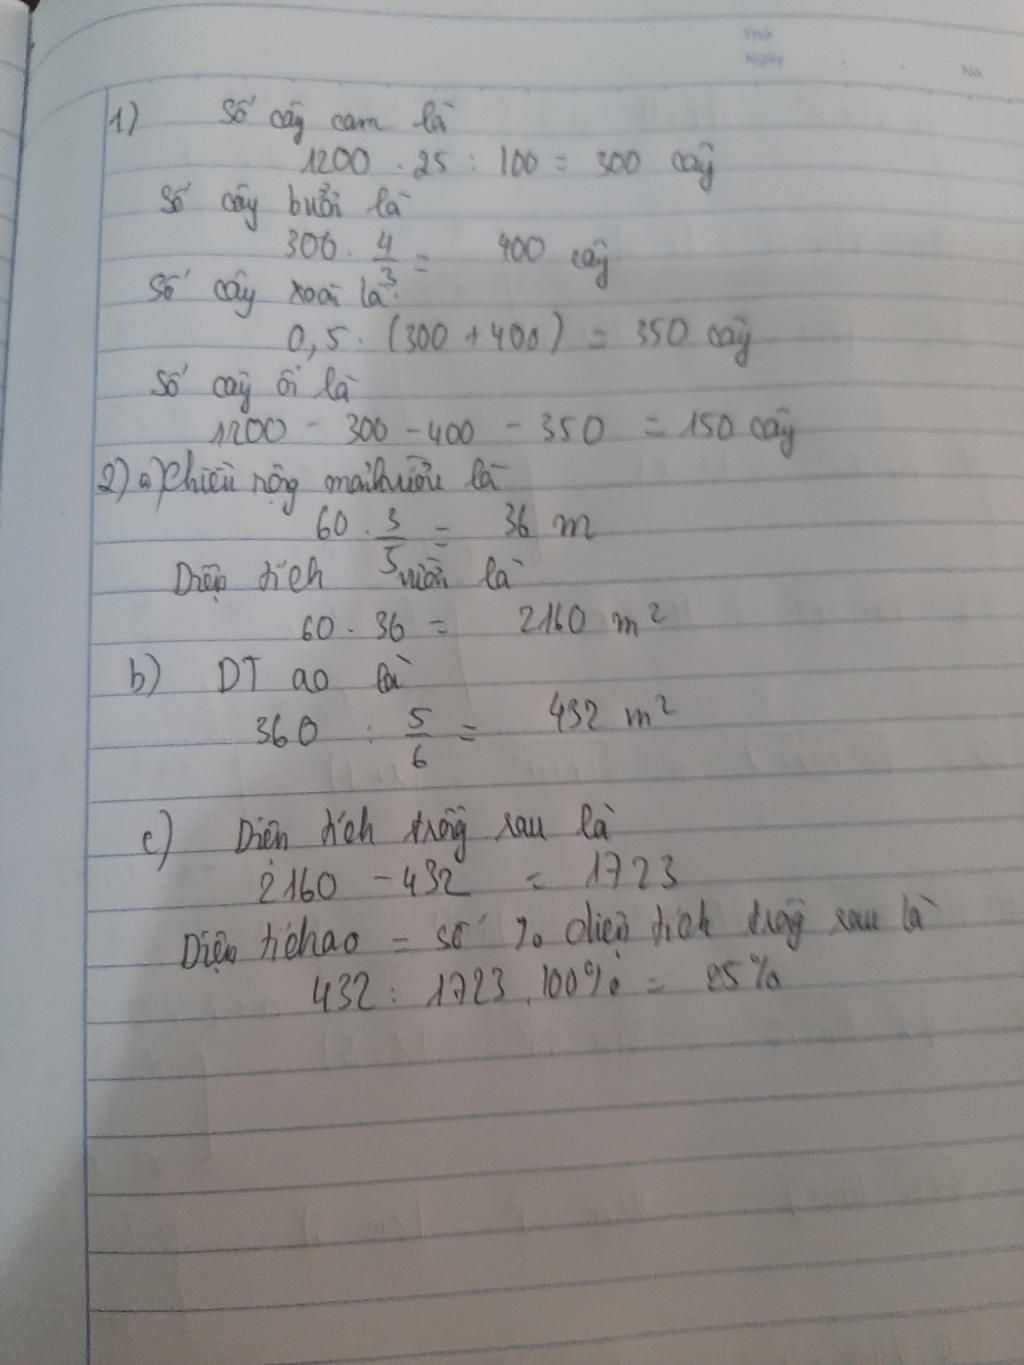 Thứ
Ngày
No.
1) Số cây cam là
1200 . 25 : 100 = 300 cây
Số cây bưởi là
300 . 4/3 = 400 cây
Số cây xoài là:
0,5 . (300 + 400) = 350 cây
Số cây ổi là
1200 - 300 - 400 - 350 = 150 cây
2) a) Chiều rộng là
60 . 3/5 = 36 m
Diện tích vườn là
60 . 36 = 2160 m²
b) DT ao là
360 : 5/6 = 432 m²
c) Diện tích trồng rau là
2160 - 432 = 1723
Diện tích ao = số % diện tích trồng rau là
432 : 1723 . 100% = 25%